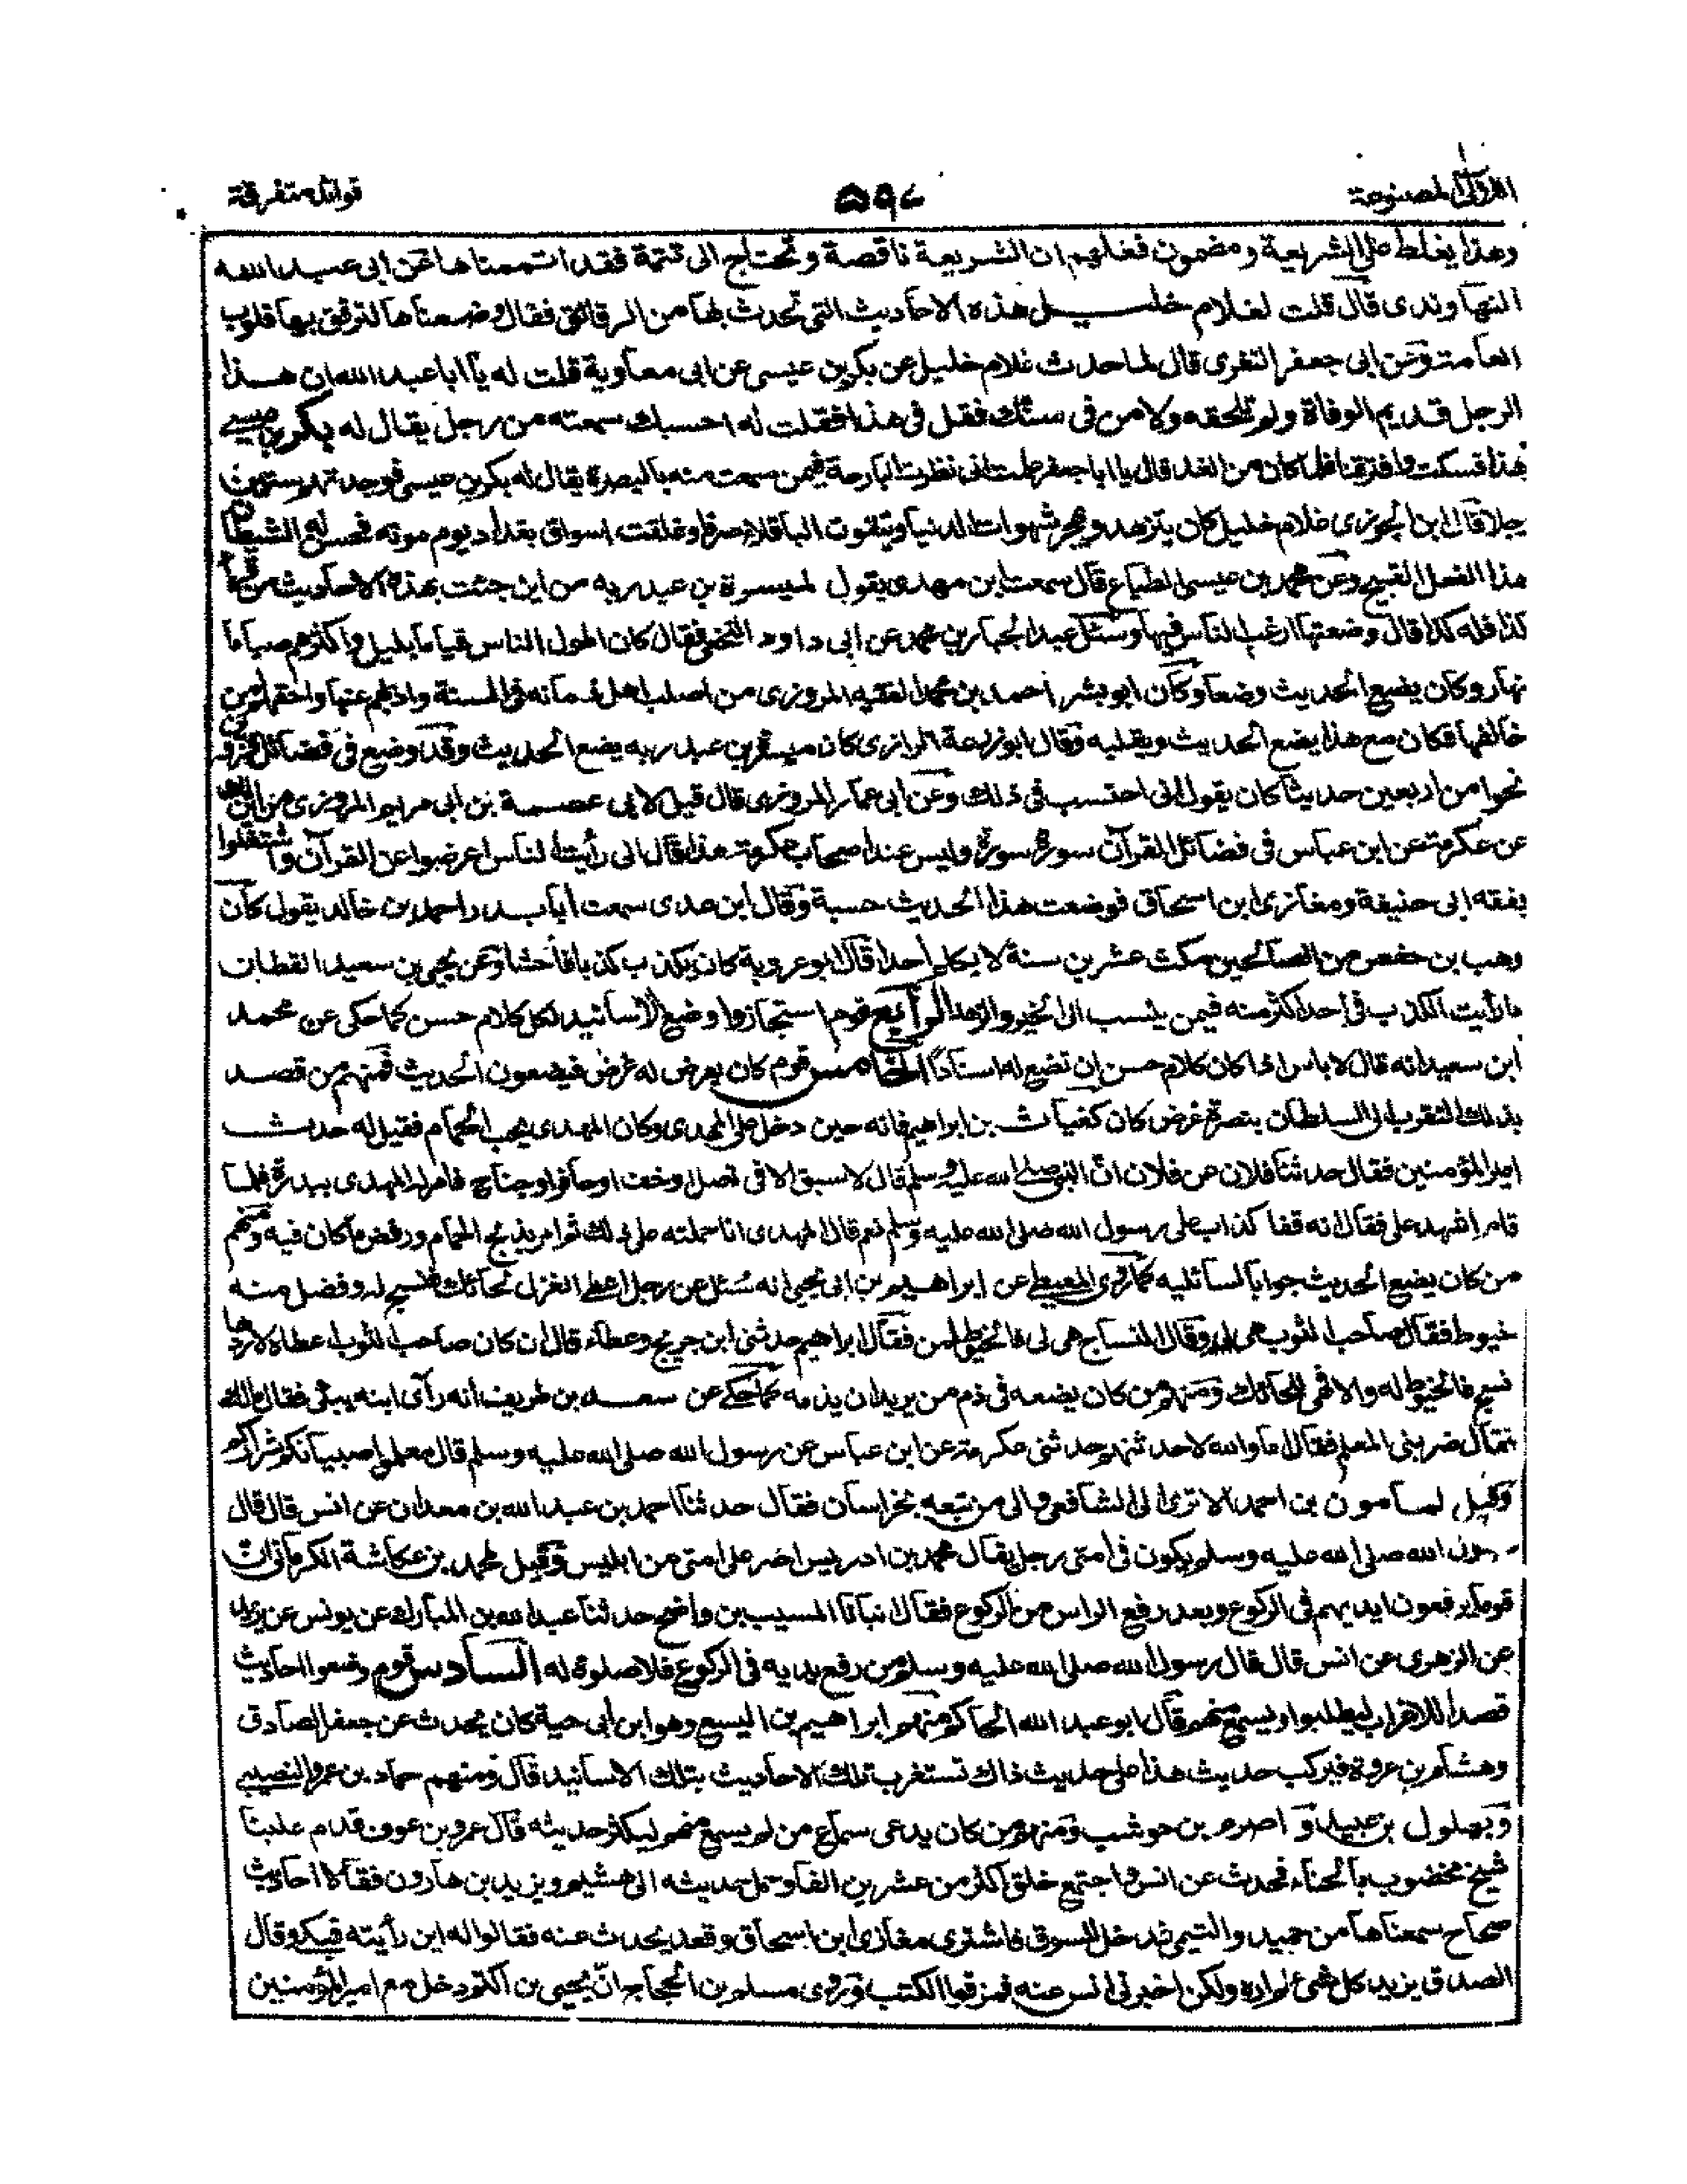 اللآلئ المصنوعة
٥٩٤
فوائد متفرقة
وهذا يغلط على الشريعة ومضمون فعلهم ان الشريعة ناقصة وتحتاج الى تتمة فقد اتممناها وعن ابى عبد الله
النهاوندى قال قلت لغلام خليل هذه الاحاديث التى تحدث بها من الرقائق فقال وضعناها لنرقق بها قلوب
العامة وعن ابى جعفر الشعيرى قال لما حدث غلام خليل عن بكر بن عيسى عن ابى معاوية قلت له يا ابا عبد الله ان هذا
الرجل قديم الوفاة ولم تلحقه ولا من فى سنك ففكر فى هذا فقلت له احسبك سمعته من رجل يقال له بكر بن عيسى
هذا فسكت وافترقنا فلما كان من الغد قال يا ابا جعفر علمت انى نظرت البارحة فيمن سمعت منه بالبصرة يقال له بكر بن عيسى فوجدتهم ستين
رجلا قال ابن الجوزى غلام خليل كان يتزهد ويهجر شهوات الدنيا ويتقوت الباقلا صرفا وغلقت اسواق بغداد يوم موته فحسن له الشيطان
هذا الفعل القبيح وعن محمد بن عيسى الطباع قال سمعت ابن مهدى يقول لميسرة بن عبد ربه من اين جئت بهذه الاحاديث من قرأ
كذا فله كذا قال وضعتها ارغب الناس فيها وسئل عبد الجبار بن محمد عن ابى داود النخعى فقال كان اطول الناس قياما بليل واكثرهم صياما
بنهار وكان يضع الحديث وضعا وكان ابو بشر احمد بن محمد الفقيه المروزى من اصلب اهل زمانه فى السنة واذبهم عنها واحقرهم لمن
خالفها فكان مع هذا يضع الحديث ويقلبه وقال ابو زرعة الرازى كان ميسرة بن عبد ربه يضع الحديث وقد وضع فى فضائل قزوين
نحوا من اربعين حديثا كان يقول انى احتسب فى ذلك وعن ابى عمار المروزى قال قيل لابى عصمة بن ابى مريم المروزى من اين لك
عن عكرمة عن ابن عباس فى فضائل القرآن سورة سورة وليس عند اصحاب عكرمة هذا قال انى رأيت الناس اعرضوا عن القرآن واشتغلوا
بفقه ابى حنيفة ومغازى ابن اسحاق فوضعت هذا الحديث حسبة وقال ابن عدى سمعت ابا بدر احمد بن خالد يقول كان
وهب بن حفص من الصالحين مكث عشرين سنة لا يكلم احدا قال ابو عروبة كان يكذب كذبا فاحشا وعن يحيى بن سعيد القطان
ما رأيت الكذب فى احد اكثر منه فيمن ينسب الى الخير والزهد الرابع قوم استجازوا وضع الاسانيد لكل كلام حسن كما حكى عن محمد
ابن سعيد انه قال لا باس اذا كان كلام حسن ان تضع له اسنادا الخامس قوم كان يعرض له غرض فيضعون الحديث فمنهم من قصد
بذلك التقرب الى السلطان بنصرة غرض كان كغياث بن ابراهيم فانه حين دخل على المهدى وكان المهدى يحب الحمام فقيل له حدث
امير المؤمنين فقال حدثنا فلان عن فلان ان النبى صلى الله عليه وسلم قال لا سبق الا فى نصل او خف او حافر او جناح فامر له المهدى ببدرة فلما
قام اشهد على فقال انه قفا كذاب على رسول الله صلى الله عليه وسلم نعم قال المهدى انا حملته على ذلك ثم امر بذبح الحمام ورفض ما كان فيه ومنهم
من كان يضع الحديث جوابا لسائليه كما روى المعيطى عن ابراهيم بن ابى يحيى انه سئل عن رجل اعطى الغزل لحائك فنسج له وفضل منه
خيوط فقال صاحب الثوب هى لى وقال النساج هى لى فالخيوط لمن فقال ابراهيم حدثنى ابن جريج وعطاء قال ان كان صاحب الثوب اعطاه
نسج فالخيوط له والا فهى للحائك ومنهم من كان يضعه فى ذم من يريد ان يذمه كما حكى عن سعد بن طريف انه رآى ابنه يبكى فقال مالك
فقال ضربنى المعلم فقال اما والله لاحدثنهم حدثنى عكرمة عن ابن عباس عن رسول الله صلى الله عليه وسلم قال معلموا صبيانكم شراركم
وقيل لمأمون بن احمد الا ترى الى الشافعى والى من تبعه بخراسان فقال حدثنا احمد بن عبد الله بن معدان عن انس قال قال
رسول الله صلى الله عليه وسلم يكون فى امتى رجل يقال محمد بن ادريس اضر على امتى من ابليس وقيل لمحمد بن عكاشة الكرمانى ان
قوما يرفعون ايديهم فى الركوع وبعد رفع الراس من الركوع فقال انبأنا المسيب بن واضح حدثنا عبد الله بن المبارك عن يونس عن يزيد
عن الزهرى عن انس قال قال رسول الله صلى الله عليه وسلم من رفع يديه فى الركوع فلا صلوة له السادس قوم وضعوا احاديث
قصدا للاغراب ليطلبوا ويسمع منهم قال ابو عبد الله الحاكم منهم ابراهيم بن اليسع وهو ابن ابى حية كان يحدث عن جعفر الصادق
وهشام بن عروة فيركب حديث هذا على حديث ذاك تستغرب تلك الاحاديث بتلك الاسانيد قال ومنهم حماد بن عمرو النصيبى
وبهلول بن عبيد و اصرم بن حوشب ومنهم من كان يدعى سماع من لم يسمع منهم ليكثر حديثه قال عمرو بن عوون قدم علينا
شيخ مخضوب بالحناء فحدث عن انس واجتمع خلق اكثر من عشرين الفا وحمل حديثه الى هشيم ويزيد بن هارون فقالا احاديث
صحاح سمعناها من حميد والتيمى فدخل السوق فاشترى مغازى ابن اسحاق وقعد يحدث عنه فقالوا له اين رأيته فبكى وقال
الصدق يزيد كل شئ لم اره ولكن اخبرنى انس عنه فمزقوا الكتب وروى مسلم بن الحجاج ان يحيى بن اكثم دخل مع امير المؤمنين